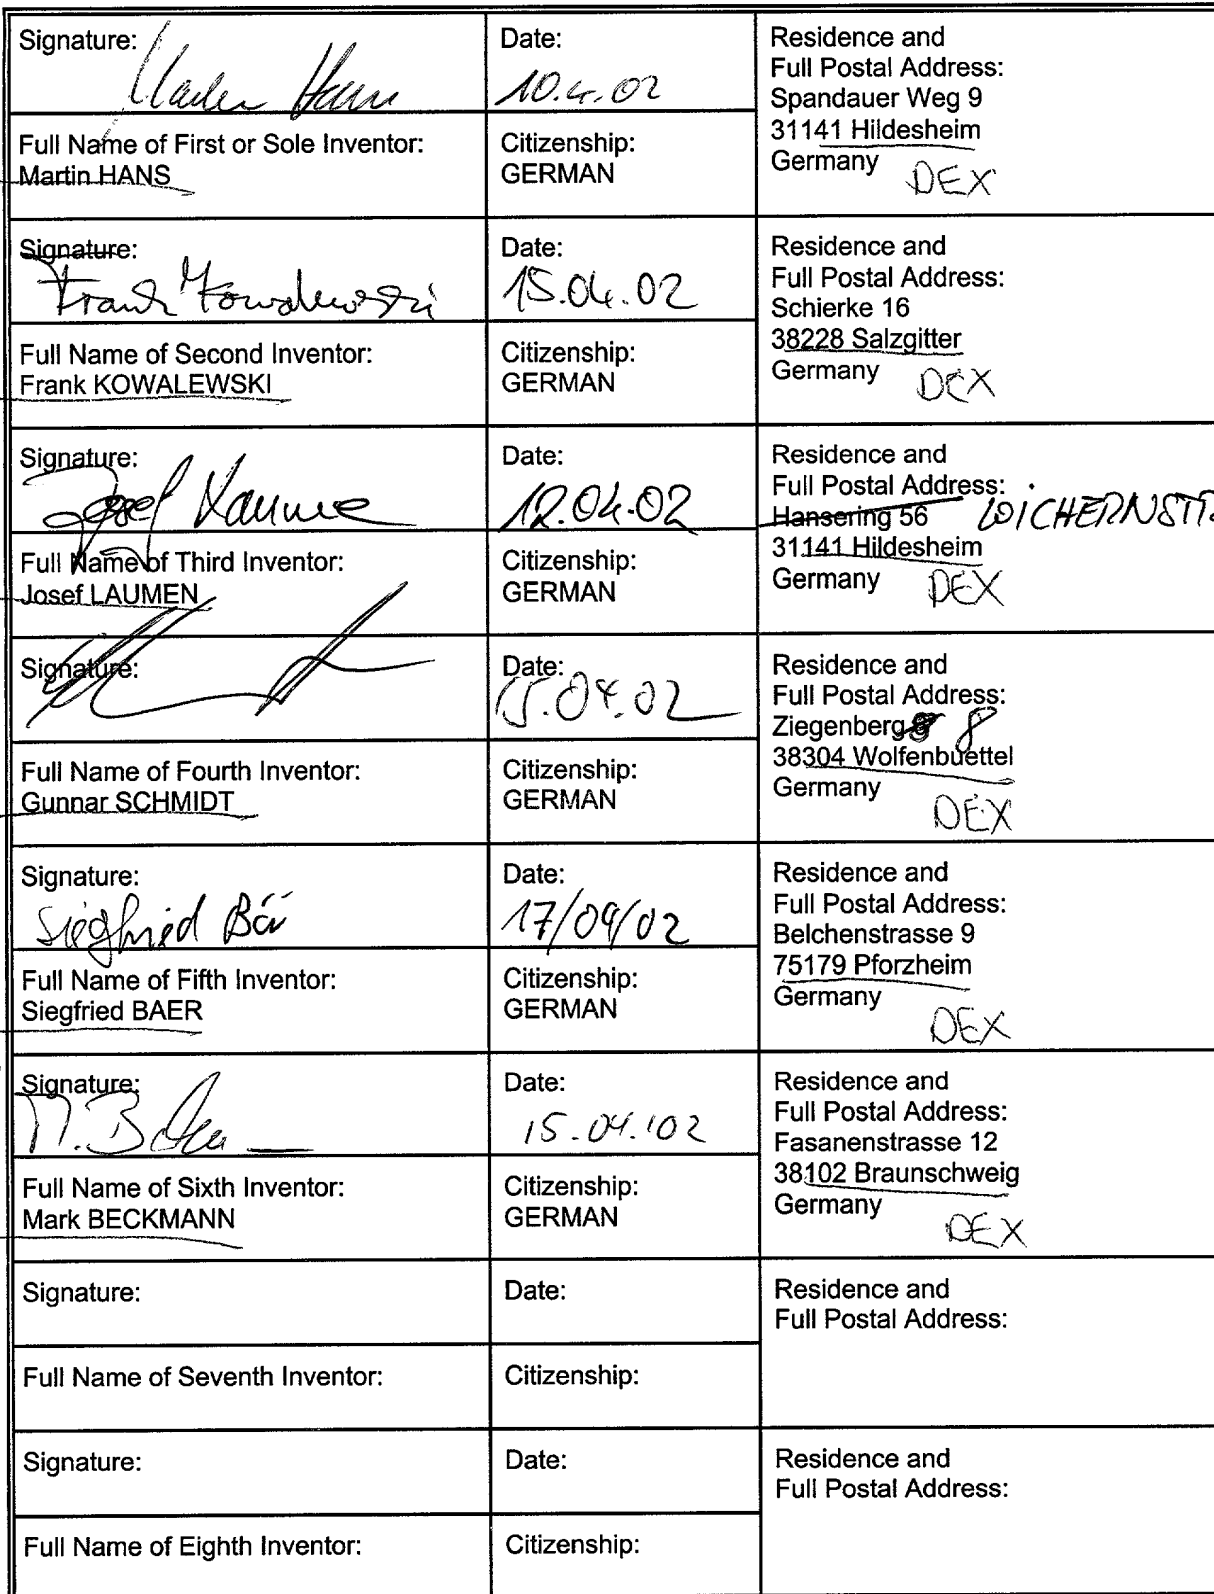 Signature:
Martin Hans
Date:
10.4.02
Residence and
Full Postal Address:
Spandauer Weg 9
31141 Hildesheim
Germany DEX
Full Name of First or Sole Inventor:
Martin HANS
Citizenship:
GERMAN
Signature:
Frank Kowalewski
Date:
15.04.02
Residence and
Full Postal Address:
Schierke 16
38228 Salzgitter
Germany DEX
Full Name of Second Inventor:
Frank KOWALEWSKI
Citizenship:
GERMAN
Signature:
Josef Laumen
Date:
12.04.02
Residence and
Full Postal Address:
Hansering 56 WICHERNSTR
31141 Hildesheim
Germany DEX
Full Name of Third Inventor:
Josef LAUMEN
Citizenship:
GERMAN
Signature:
Date:
15.04.02
Residence and
Full Postal Address:
Ziegenberg 8
38304 Wolfenbuettel
Germany DEX
Full Name of Fourth Inventor:
Gunnar SCHMIDT
Citizenship:
GERMAN
Signature:
Siegfried Bär
Date:
17/04/02
Residence and
Full Postal Address:
Belchenstrasse 9
75179 Pforzheim
Germany DEX
Full Name of Fifth Inventor:
Siegfried BAER
Citizenship:
GERMAN
Signature:
Date:
15.04.'02
Residence and
Full Postal Address:
Fasanenstrasse 12
38102 Braunschweig
Germany DEX
Full Name of Sixth Inventor:
Mark BECKMANN
Citizenship:
GERMAN
Signature:
Date:
Residence and
Full Postal Address:
Full Name of Seventh Inventor:
Citizenship:
Signature:
Date:
Residence and
Full Postal Address:
Full Name of Eighth Inventor:
Citizenship: